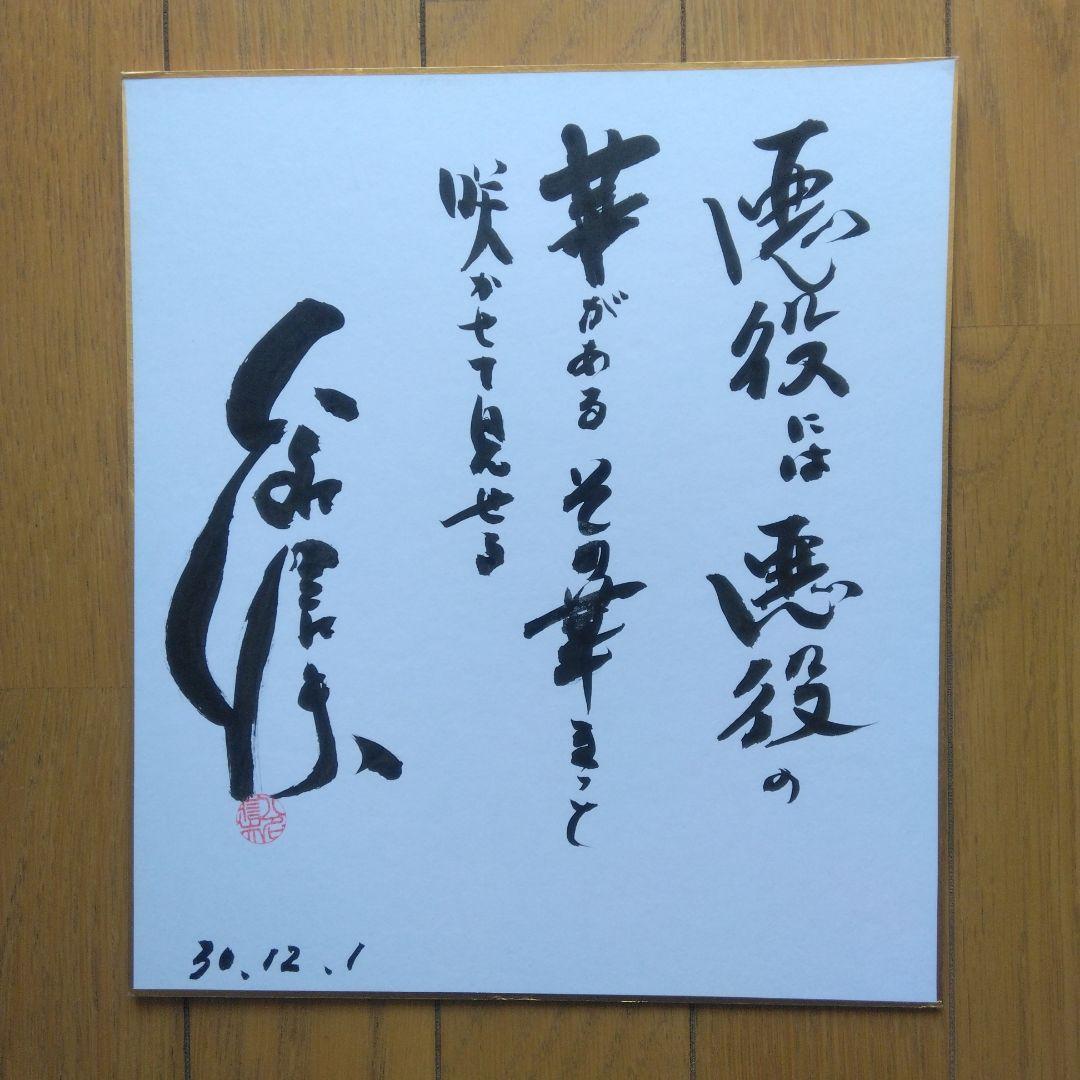 悪役には悪役の
華がある その華きっと
咲かせて見せる
30.12.1